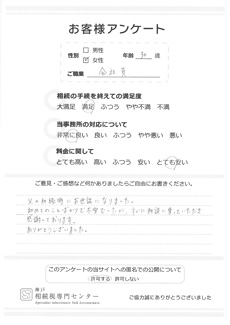 お客様アンケート
性別 □ 男性 ☑ 女性 年齢 30 歳
ご職業 会社員
相続の手続を終えての満足度
大満足 満足 ふつう やや不満 不満
当事務所の対応について
非常に良い 良い ふつう やや悪い 悪い
料金に関して
とても高い 高い ふつう 安い とても安い
ご意見・ご感想など何かありましたらご自由にお書きください。
父の相続時にお世話になりました。
初めてのことばかりで不安でしたが、
感謝しております。
ありがとうございました。
このアンケートの当サイトへの匿名での公開について
許可する 許可しない
相続税専門センター
ご協力誠にありがとうございました